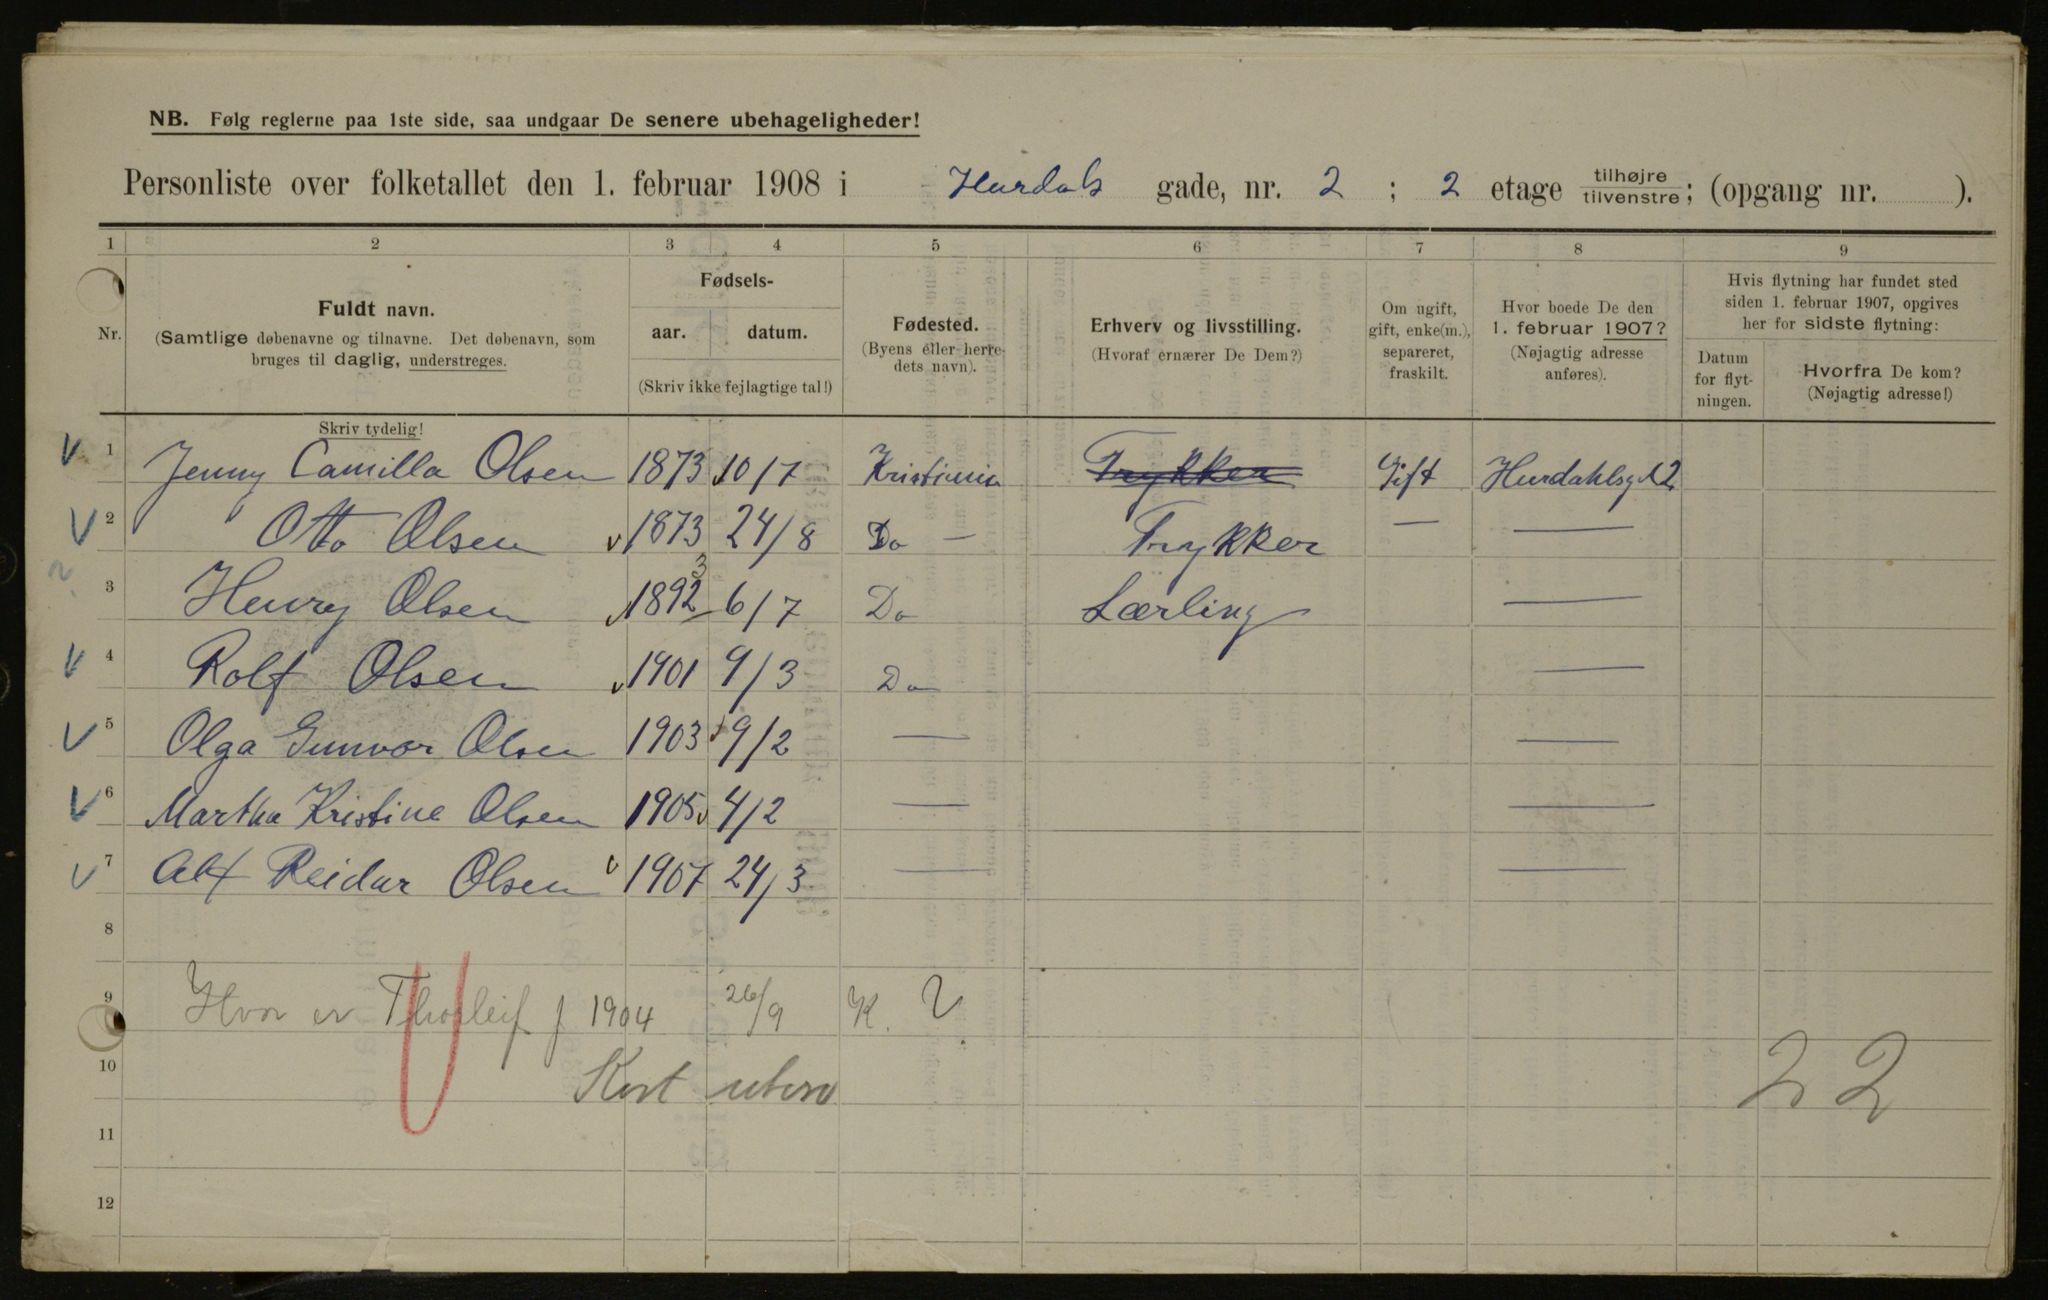 NB. Følg reglerne paa 1ste side, saa undgaar De senere ubehageligheder!
Personliste over folketallet den 1. februar 1908 i Hurdals gade, nr. 2 ; 2 etage tilhøjre tilvenstre; (opgang nr. ).
1 2 3 4 5 6 7 8 9
Nr.
Fuldt navn.
(Samtlige døbenavne og tilnavne. Det døbenavn, som
bruges til daglig, understreges.
Skriv tydelig!
Fødsels-
aar. datum.
(Skriv ikke fejlagtige tal!)
Fødested.
(Byens eller herre-
dets navn).
Erhverv og livsstilling.
(Hvoraf ernærer De Dem?)
Om ugift,
gift, enke(m.),
separeret,
fraskilt.
Hvor boede De den
1. februar 1907?
(Nøjagtig adresse
anføres).
Hvis flytning har fundet sted
siden 1. februar 1907, opgives
her for sidste flytning:
Datum
for flyt-
ningen.
Hvorfra De kom?
(Nøjagtig adresse!)
1 Jenny Camilla Olsen 1873 10/7 Kristiania Trykker Gift Hurdahlsgd 2
2 Otto Olsen 1873 24/8 Do — Trykker — —
3 Henry Olsen 1892 3 6/7 Do Lærling —
4 Rolf Olsen 1901 9/3 Do —
5 Olga Gunvor Olsen 1903 9/2 — —
6 Martha Kristine Olsen 1905 4/2 — —
7 Alf Reidar Olsen 1907 24/3 — —
8
9 Hvor er Thorleif f 1904 26/9 K. ?
10 Kort 22
11
12